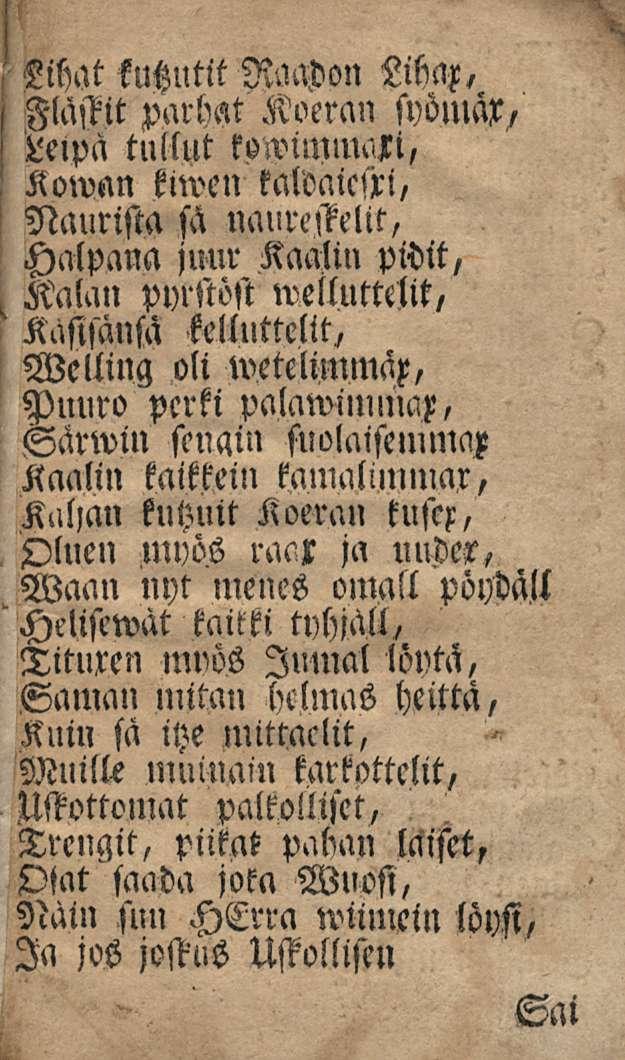 Lihat kutzutit Raadon Lihax,
Fläskit parhat Koeran syömäx,
Leipä tullut kowimmaxi,
Kowan kiwen kaldaiesxi,
Naurista sä naureskelit,
Halpana juur Kaalin pidit,
Kalan pyrstöst welluttelit,
Käsisänsä kelluttelit,
Welling oli wetelimmäx,
Puuro perki palawimmax,
Särwin sengin suolaisemmax
Kaalin kaikkein kamalimmax,
Kaljan kutzuit Koeran kusex,
Oluen myös raax ja uudex,
Waan nyt menes omall pöydäll
Helisewät kaikki tyhjäll,
Tituxen myös Jumal löytä,
Saman mitan helmas heittä,
Kuin sä itze mittaelit,
Muille muinain karkottelit,
Uskottomat palkolliset,
Trengit, piikat pahan laiset,
Osat saada joka Wuosi,
Näin sun HErra wiimein löysi,
Ja jos joskus Uskollisen
Sai